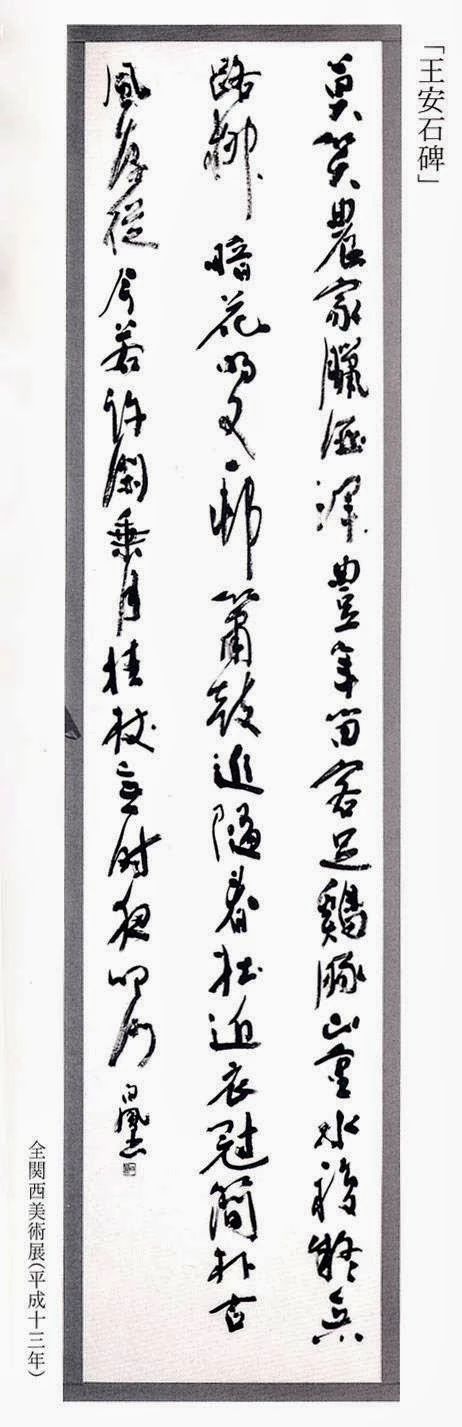 「王安石碑」
莫笑農家臘酒渾豊年留客足鷄豚山重水複疑无
路柳暗花明又一邨簫鼓追隨春社近衣冠簡朴古
風存從今若許閑乗月拄杖無時夜叩門
全関西美術展(平成十三年)